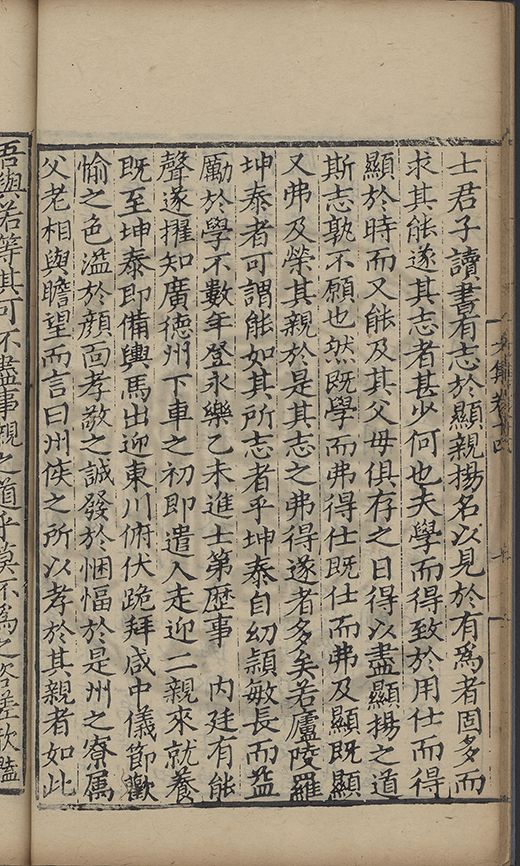 士君子讀書有志於顯親揚名以見於有為者固多而
求其能遂其志者甚少何也夫學而得致於用仕而得
顯於時而又能及其父母俱存之日得以盡顯揚之道
斯志孰不願也然既學而弗得仕既仕而弗及顯既顯
又弗及榮其親於是其志之弗得遂者多矣若廬陵羅
坤泰者可謂能如其所志者乎坤泰自幼頴敏長而益
勵於學不數年登永樂乙未進士第歴事　内廷有能
聲遂擢知廣德州下車之初即遣人走迎二親來就養
既至坤泰即備輿馬出迎東川俯伏跪拜咸中儀節歡
愉之色溢於顔面孝敬之誠發於悃愊於是州之寮属
父老相與瞻望而言曰州侯之所以孝於其親者如此
吾與若等其可不盡事親之道乎莫不為之咨嗟歆